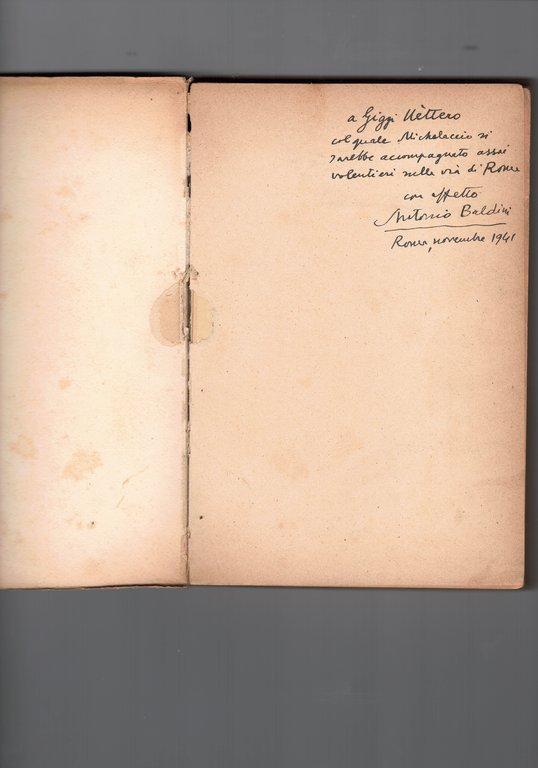 a Giggi Uèttero
col quale Michelaccio si
sarebbe accompagnato assai
volentieri nelle vie di Roma
con affetto
Antonio Baldini
Roma, novembre 1941